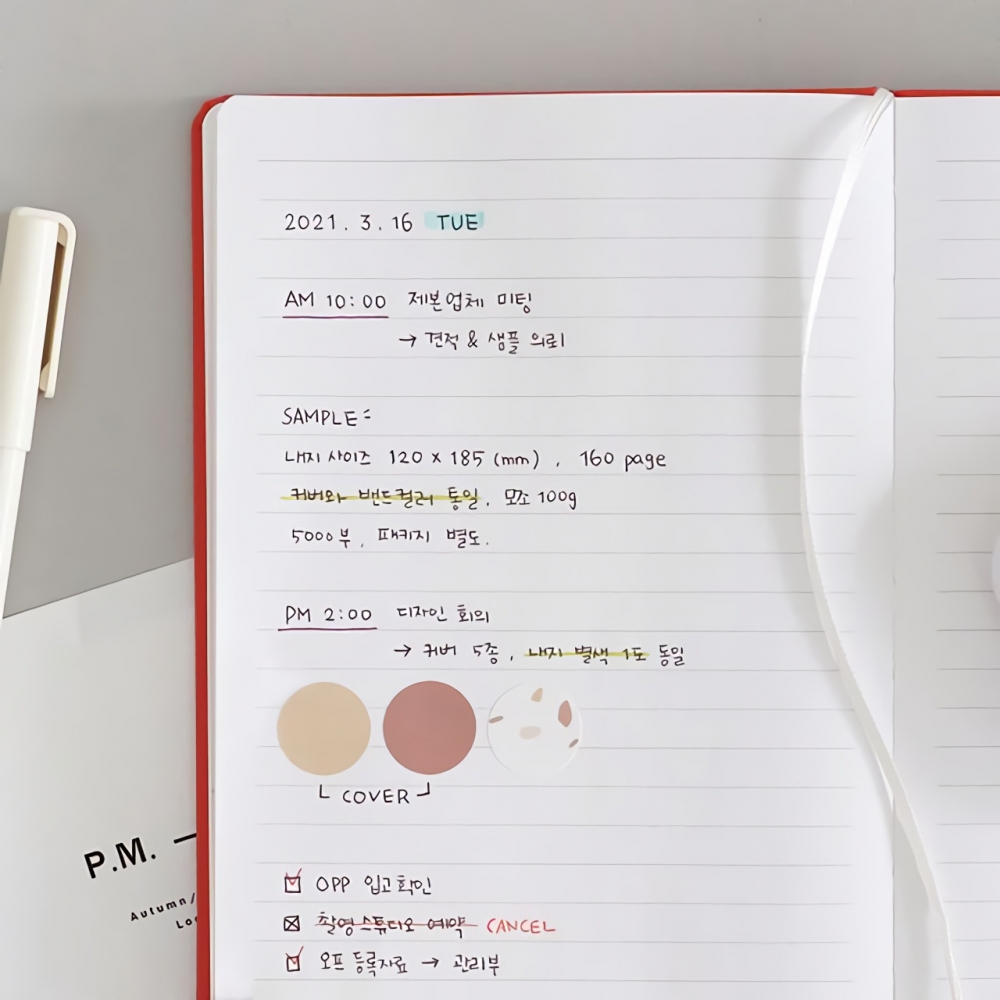 2021. 3. 16 TUE
AM 10:00 제본업체 미팅
→ 견적 & 샘플 의뢰
SAMPLE :
내지 사이즈 120 x 185 (mm) , 160 page
커버와 밴드컬러 통일, 모조 100g
5000부, 패키지 별도.
PM 2:00 디자인 회의
→ 커버 5종, 내지 별색 1도 동일
COVER
OPP 입고확인
촬영스튜디오 예약 CANCEL
오프 등록자료 → 관리부
P.M. —
Autumn/